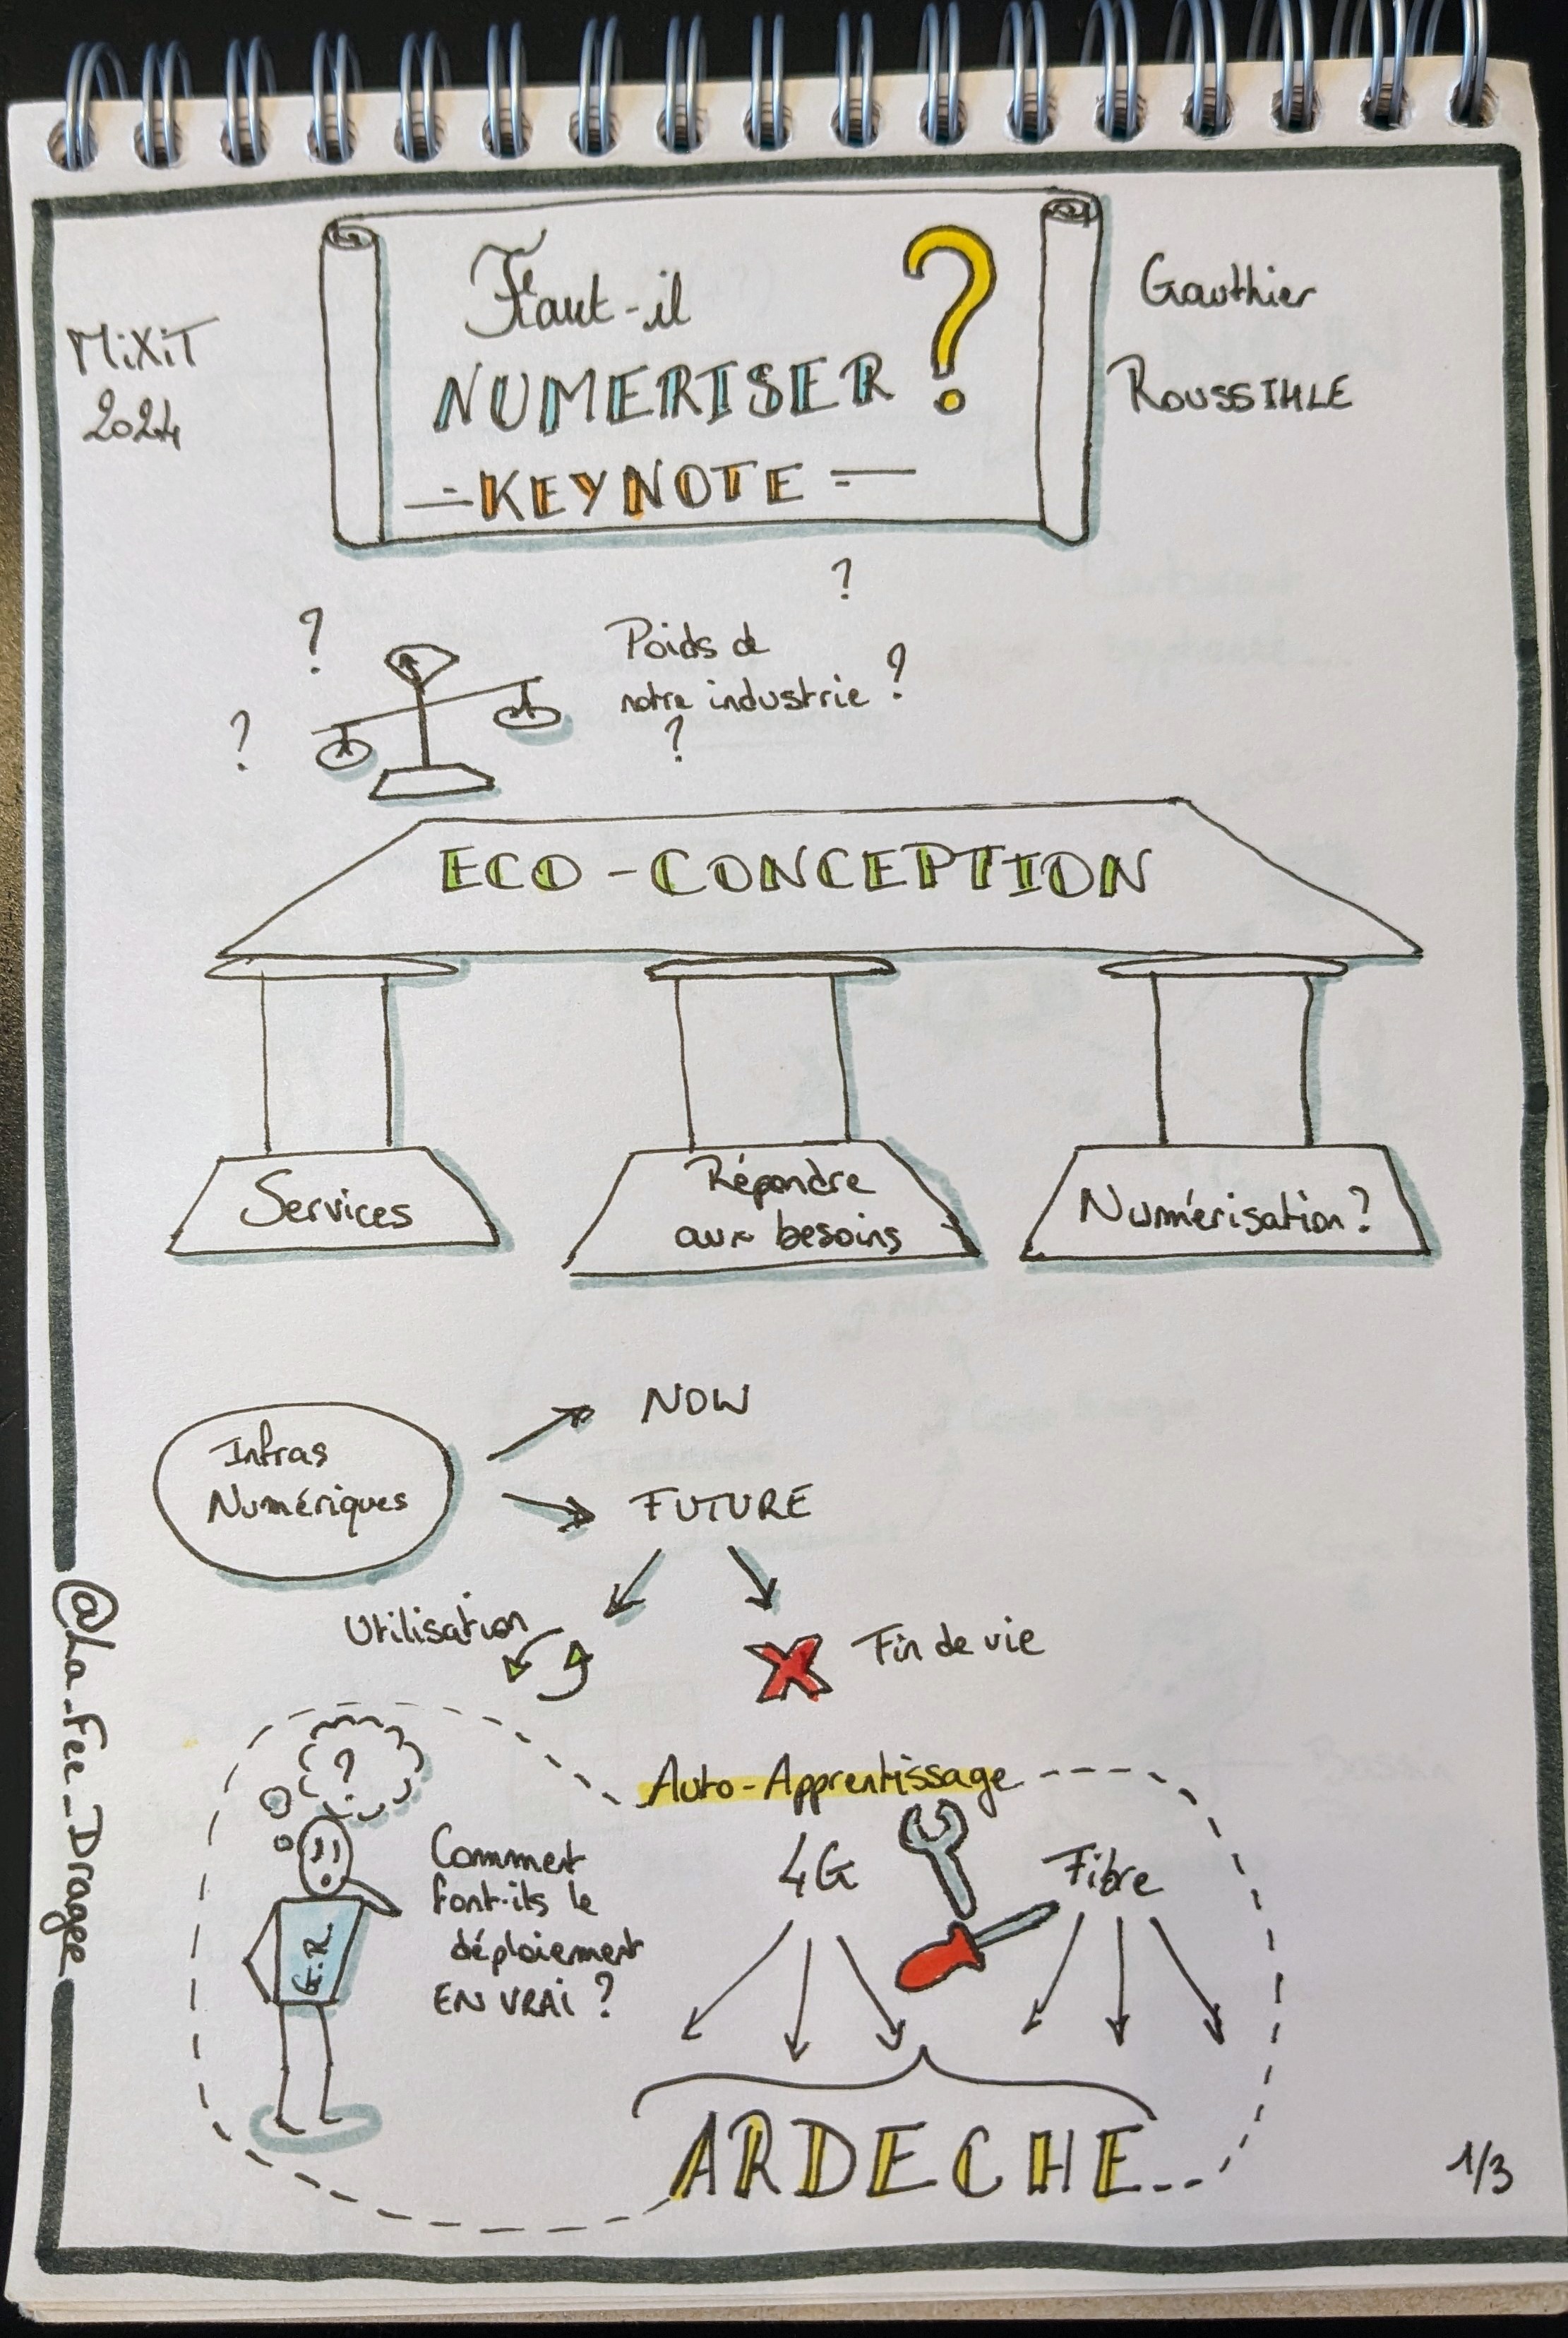 MiXiT
2024
Faut-il
NUMERISER ?
- KEYNOTE -
Gauthier
ROUSSIHLE
?
?
?
Poids de
notre industrie ?
?
ECO-CONCEPTION
Services
Répondre
aux besoins
Numérisation ?
Infras
Numériques
NOW
FUTURE
Utilisation
Fin de vie
@La_Fee_Dragee
Auto-Apprentissage
?
Comment
font-ils le
déploiement
EN VRAI ?
G.R
4G
Fibre
ARDECHE
1/3